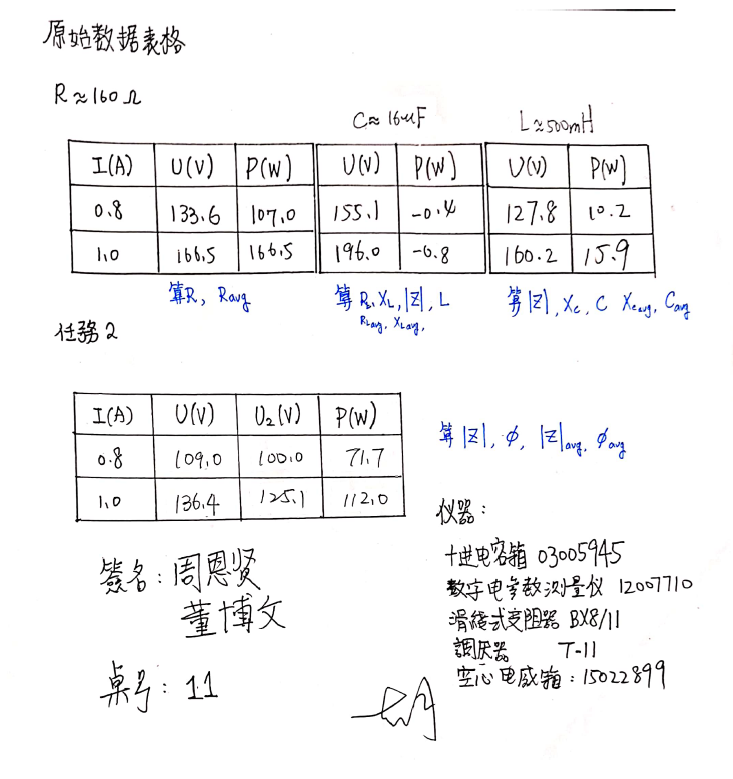 原始数据表格
R≈160Ω
C≈16uF
L≈500mH
I(A) U(V) P(W) U(V) P(W) U(V) P(W)
0.8 133.6 107.0 155.1 -0.4 127.8 10.2
1.0 166.5 166.5 196.0 -0.8 160.2 15.9
算R, Ravg
算 RL, XL, |Z|, L
RLavg, XLavg,
算|Z|, Xc, C Xcavg, Cavg
任務2
I(A) U(V) U₂(V) P(W)
0.8 109.0 100.0 71.7
1.0 136.4 125.1 112.0
算|Z|, φ, |Z|avg, φavg
仪器:
十进电容箱 03005945
数字电参数测量仪 12007710
滑线式变阻器 BX8/11
調压器 T-11
空心电感箱:15022899
簽名:周恩贤
董博文
桌号:11